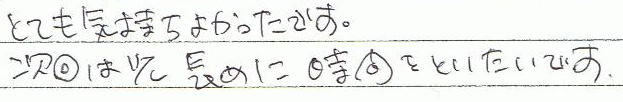 とても気持ちよかったです。
次回は 長めに 時間をといたいです.